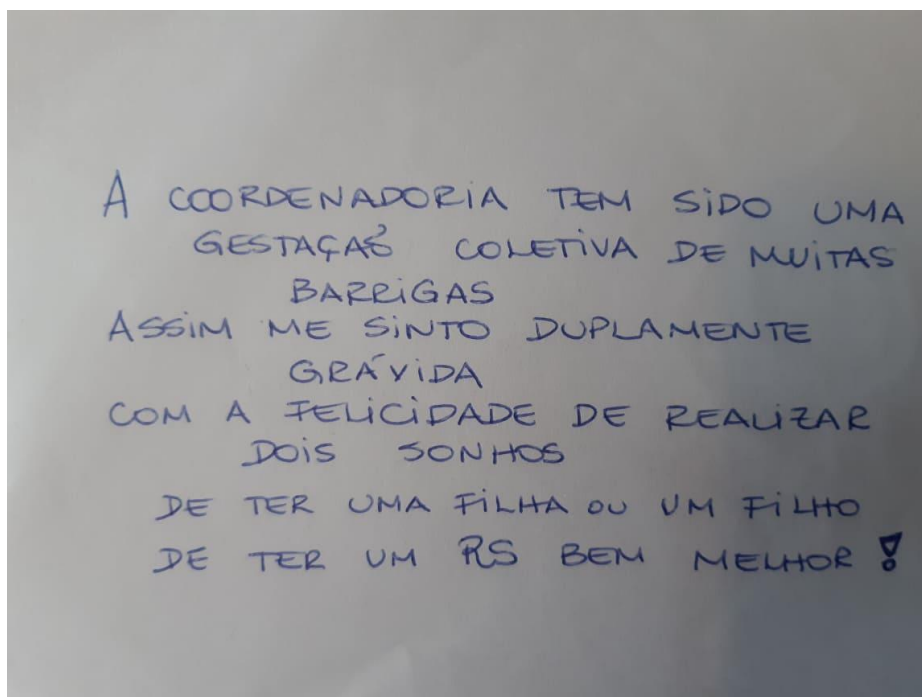 A COORDENADORIA TEM SIDO UMA
GESTAÇÃO COLETIVA DE MUITAS
BARRIGAS
ASSIM ME SINTO DUPLAMENTE
GRÁVIDA
COM A FELICIDADE DE REALIZAR
DOIS SONHOS
DE TER UMA FILHA OU UM FILHO
DE TER UM RS BEM MELHOR!